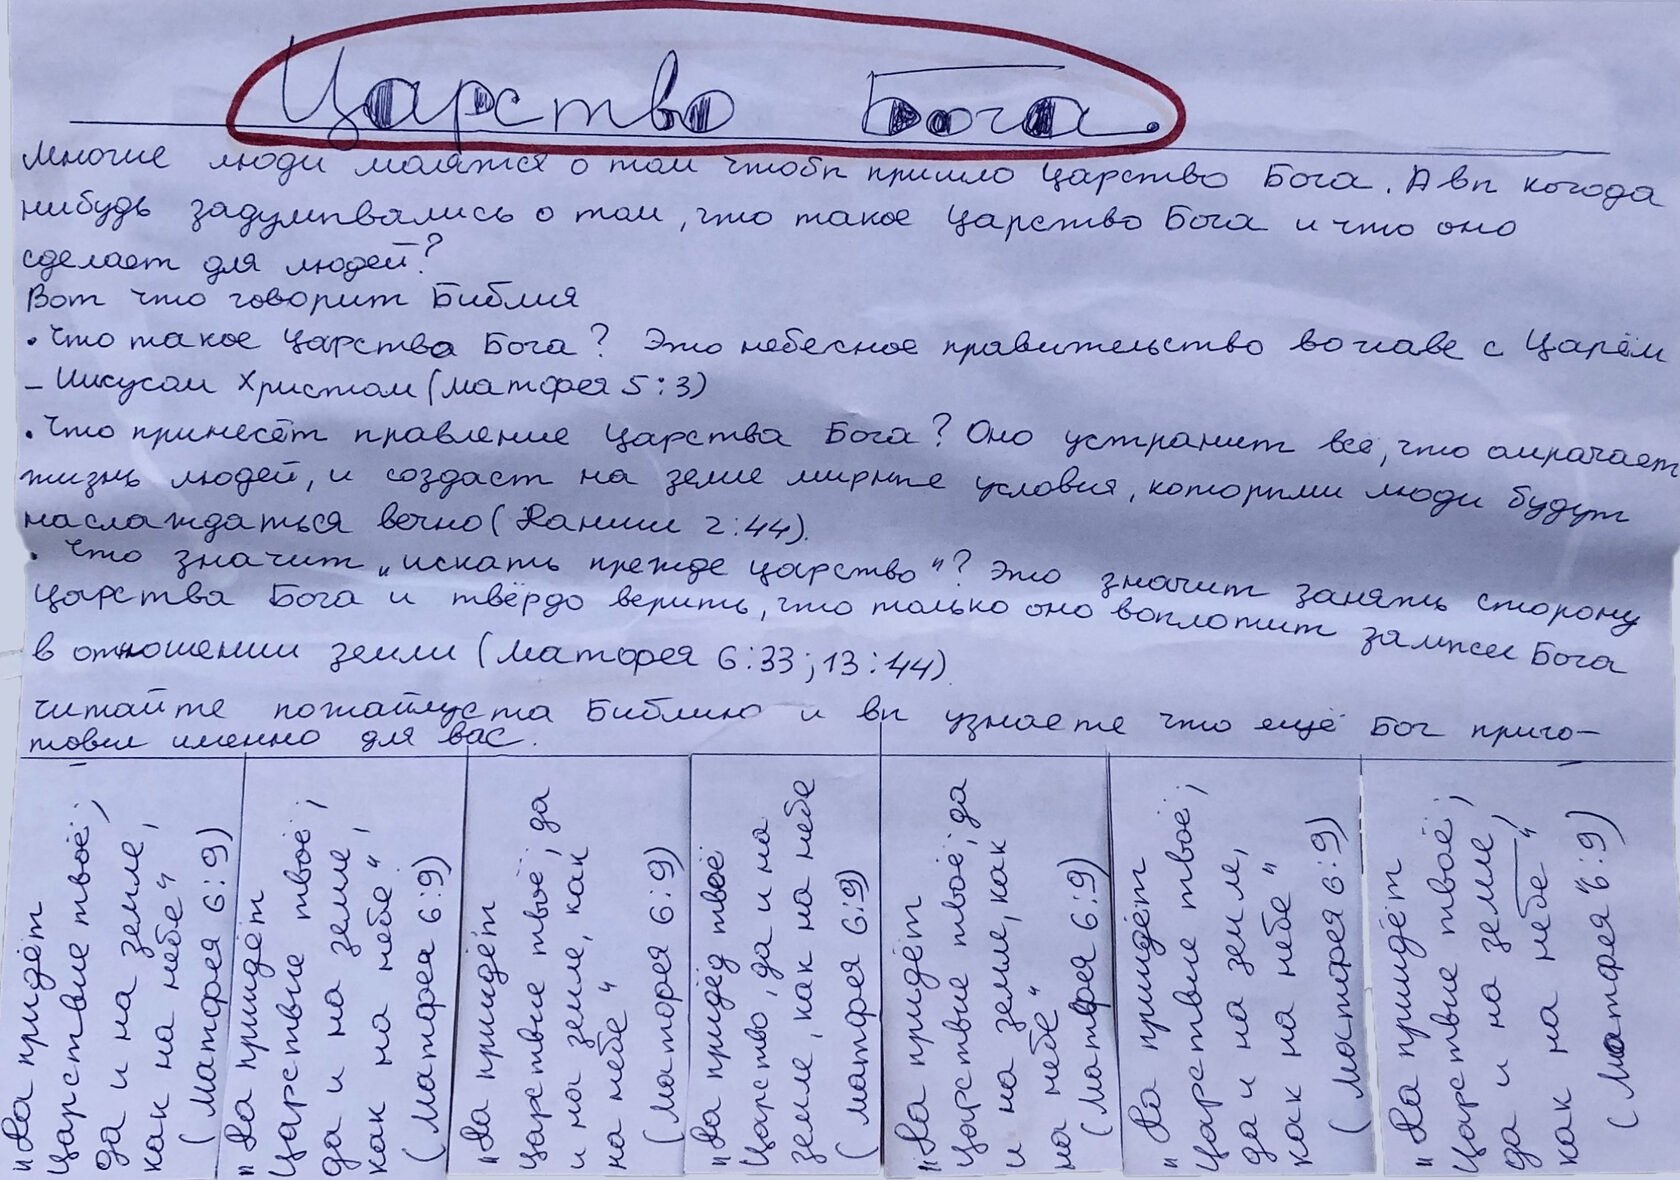 Царство Бога.
Многие люди молятся о том чтобы пришло Царство Бога. А вы когода
нибудь задумывались о том, что такое Царство Бога и что оно
сделает для людей?
Вот что говорит Библия
• Что такое Царство Бога? Это небесное правительство во главе с Царём
– Иисусом Христом (Матфея 5:3)
• Что принесёт правление Царства Бога? Оно устранит всё, что омрачает
жизнь людей, и создаст на земле мирные условия, которыми люди будут
наслаждаться вечно (Даниил 2:44).
• Что значит „искать прежде царство"? Это значит занять сторону
Царства Бога и твёрдо верить, что только оно воплотит замысел Бога
в отношении земли (Матфея 6:33; 13:44).
Читайте пожайлуста Библию и вы узнаете что ещё Бог приго-
товил именно для вас.
„Да придёт
Царствие твоё;
да и на земле,
как на небе"
(Матфея 6:9)
„Да придёт
Царствие твоё;
да и на земле,
как на небе"
(Матфея 6:9)
„Да придёт
Царствие твоё; да
и на земле, как
на небе"
(Матфея 6:9)
„Да придёд твоё
Царство, да и на
земле, как на небе
(Матфея 6:9)
„Да придёт
Царствие твоё; да
и на земле, как
на небе"
(Матфея 6:9)
„Да придёт
Царствие твоё;
да и на земле,
как на небе"
(Матфея 6:9)
„Да придёт
Царствие твоё;
да и на земле,
как на небе"
(Матфея 6:9)